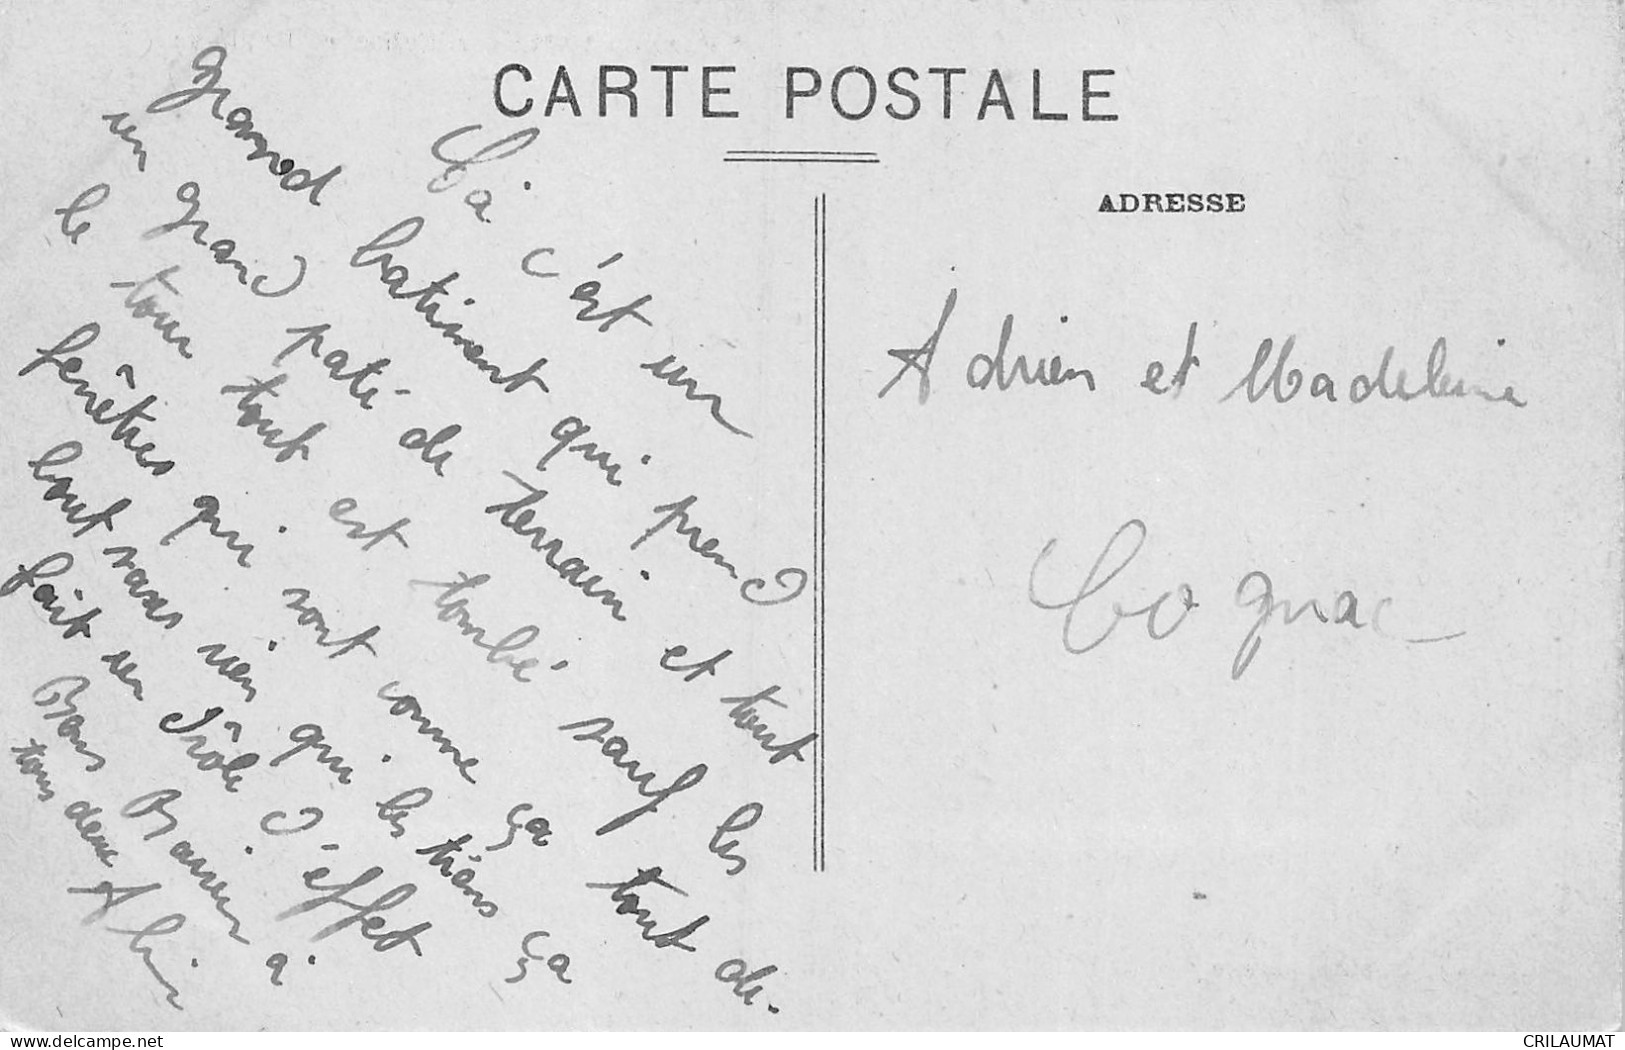 CARTE POSTALE
ADRESSE
Là c'est un
grand batiment qui prend
un grand paté de terrain et tout
le tour tout est tombé sauf les
fenêtres qui sont comme ça tout de-
bout sans rien qui les tiens ça
fait un drôle d'effet
Bons Baisers à
tous deux
Adrien et Madeleine
Cognac
delcampe.net
CRILAUMAT